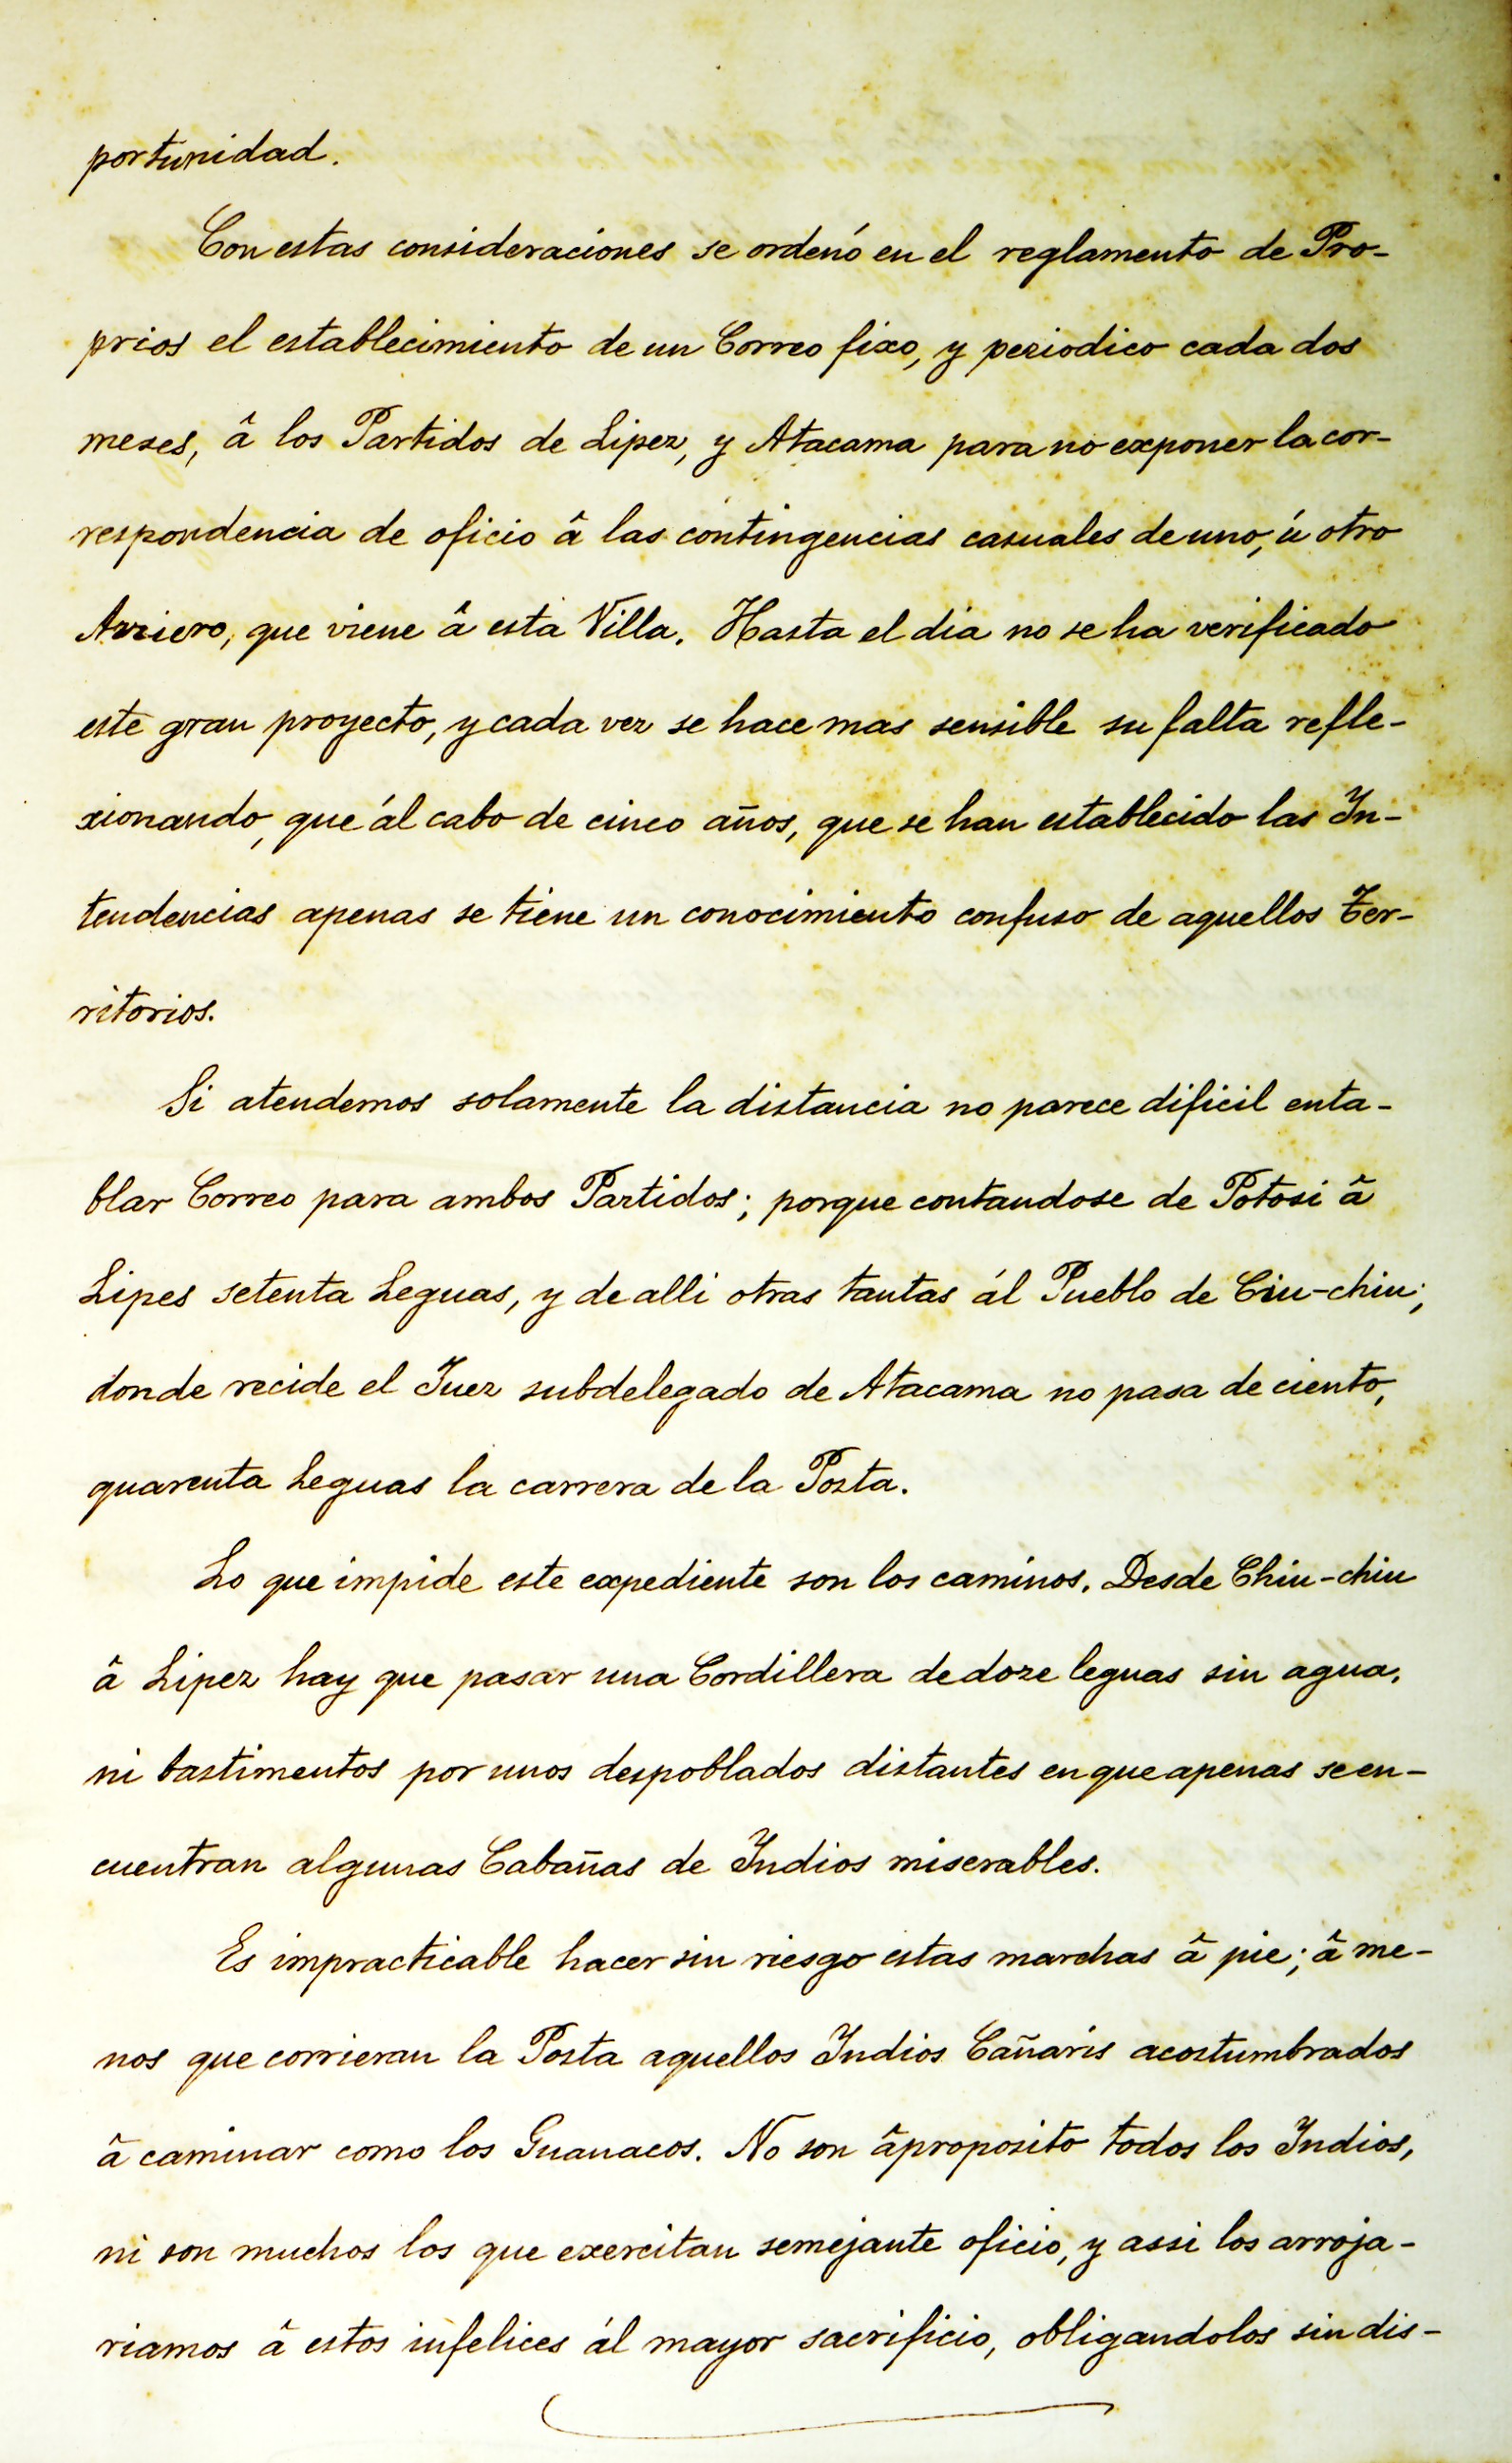 portunidad.
Con estas consideraciones se ordenó en el reglamento de Pro-
prios el establecimiento de un Correo fixo, y periodico cada dos
meses, â los Partidos de Lipez, y Atacama para no exponer la cor-
respondencia de oficio â las contingencias casuales de uno, ú otro
Arriero, que viene â esta Villa. Hasta el dia no se ha verificado
este gran proyecto, y cada vez se hace mas sensible su falta refle-
xionando, que ál cabo de cinco años, que se han establecido las In-
tendencias apenas se tiene un conocimiento confuso de aquellos Ter-
ritorios.
Si atendemos solamente la distancia no parece dificil enta-
blar Correo para ambos Partidos; porque contandose de Potosi â
Lipes setenta Leguas, y de alli otras tantas ál Pueblo de Ciu-chiu;
donde recide el Juez subdelegado de Atacama no pasa de ciento,
quarenta Leguas la carrera de la Posta.
Lo que impide este expediente son los caminos. Desde Chiu-chiu
â Lipez hay que pasar una Cordillera de doze leguas sin agua,
ni bastimentos por unos despoblados distantes en que apenas se en-
cuentran algunas Cabañas de Indios miserables.
Es impracticable hacer sin riesgo estas marchas â pie; â me-
nos que corrieran la Posta aquellos Indios Cañaris acostumbrados
â caminar como los Guanacos. No son âproposito todos los Indios,
ni son muchos los que exercitan semejante oficio, y assi los arroja-
riamos â estos infelices ál mayor sacrificio, obligandolos sin dis-